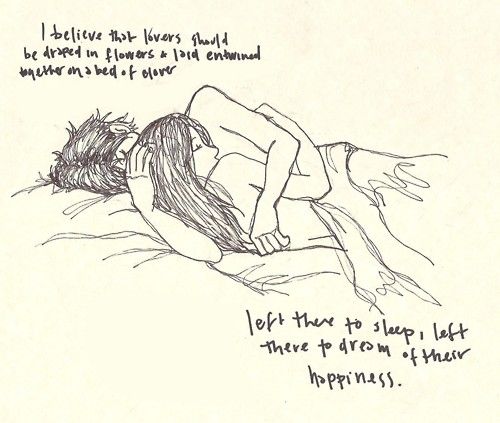 I believe that lovers should
be draped in flowers & laid entwined
together on a bed of clover
left there to sleep, left
there to dream of their
happiness.